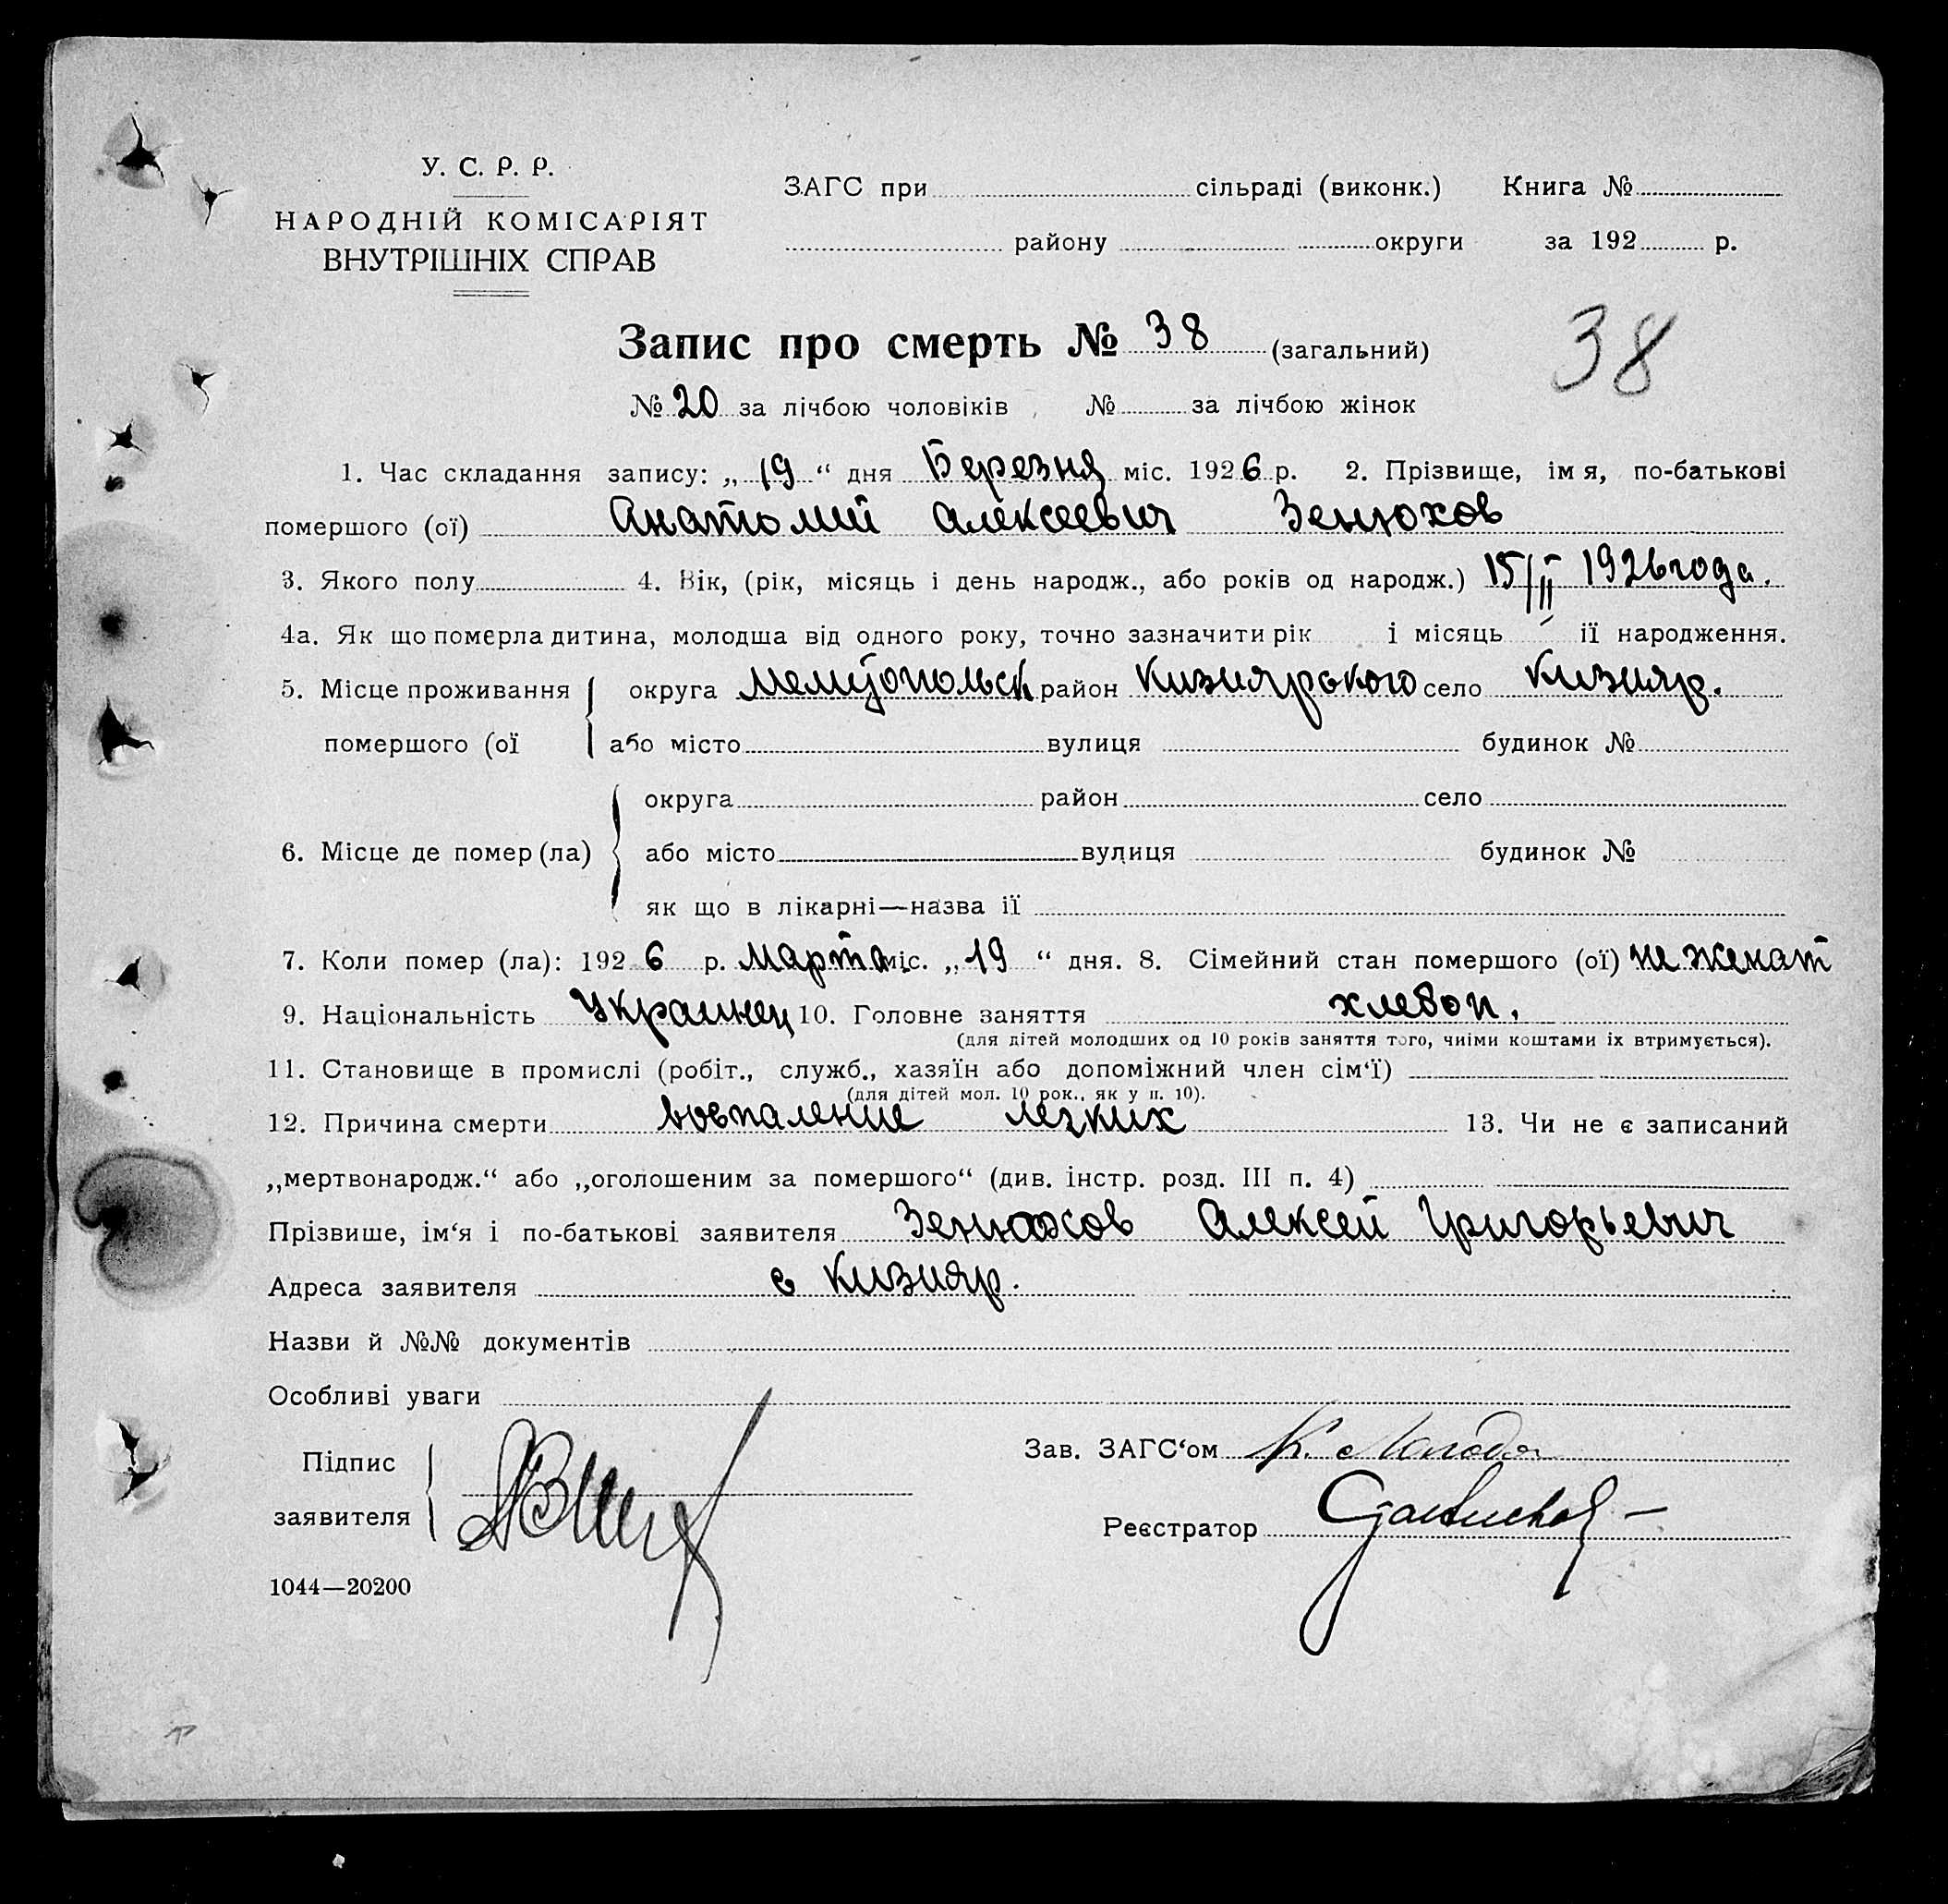 У. С. Р. Р.
НАРОДНІЙ КОМІСАРІЯТ
ВНУТРІШНІХ СПРАВ
ЗАГС при сільраді (виконк.) Книга №
району округи за 192 р.
Запис про смерть № 38 (загальний)
38
№ 20 за лічбою чоловіків, № за лічбою жінок
1. Час складання запису: „ 19 “ дня Березня міс. 1926 р. 2. Прізвище, ім я, по-батькові
помершого (ої) Анатолий Алексеевич Зенюхов
3. Якого полу 4. Вік, (рік, місяць і день народж., або років од народж.) 15/II 1926 года.
4а. Як що померла дитина, молодша від одного року, точно зазначити рік і місяць її народження.
5. Місце проживання округа район Кизиярского село Кизияр.
помершого (ої або місто вулиця будинок №
округа район село
6. Місце де помер (ла) або місто вулиця будинок №
як що в лікарні—назва її
7. Коли помер (ла): 192 6 р. марта міс. „ 19 “ дня. 8. Сімейний стан помершого (ої) не женат
9. Національність Украинец 10. Головне заняття хлебоп.
(для дітей молодших од 10 років заняття того, чиїми коштами їх втримується).
11. Становище в промислі (робіт., служб., хазяїн або допоміжний член сім‘ї)
(для дітей мол. 10 рок., як у п. 10).
12. Причина смерти воспаление легких 13. Чи не є записаний
„мертвонародж.“ або „оголошеним за помершого“ (див. інстр. розд. III п. 4)
Прізвише, ім‘я і по-батькові заявителя Зенюхов Алексей Григорьевич
Адреса заявителя с Кизияр.
Назви й №№ документів
Особливі уваги
Підпис
заявителя
Зав. ЗАГС‘ом
Реєстратор
1044—20200